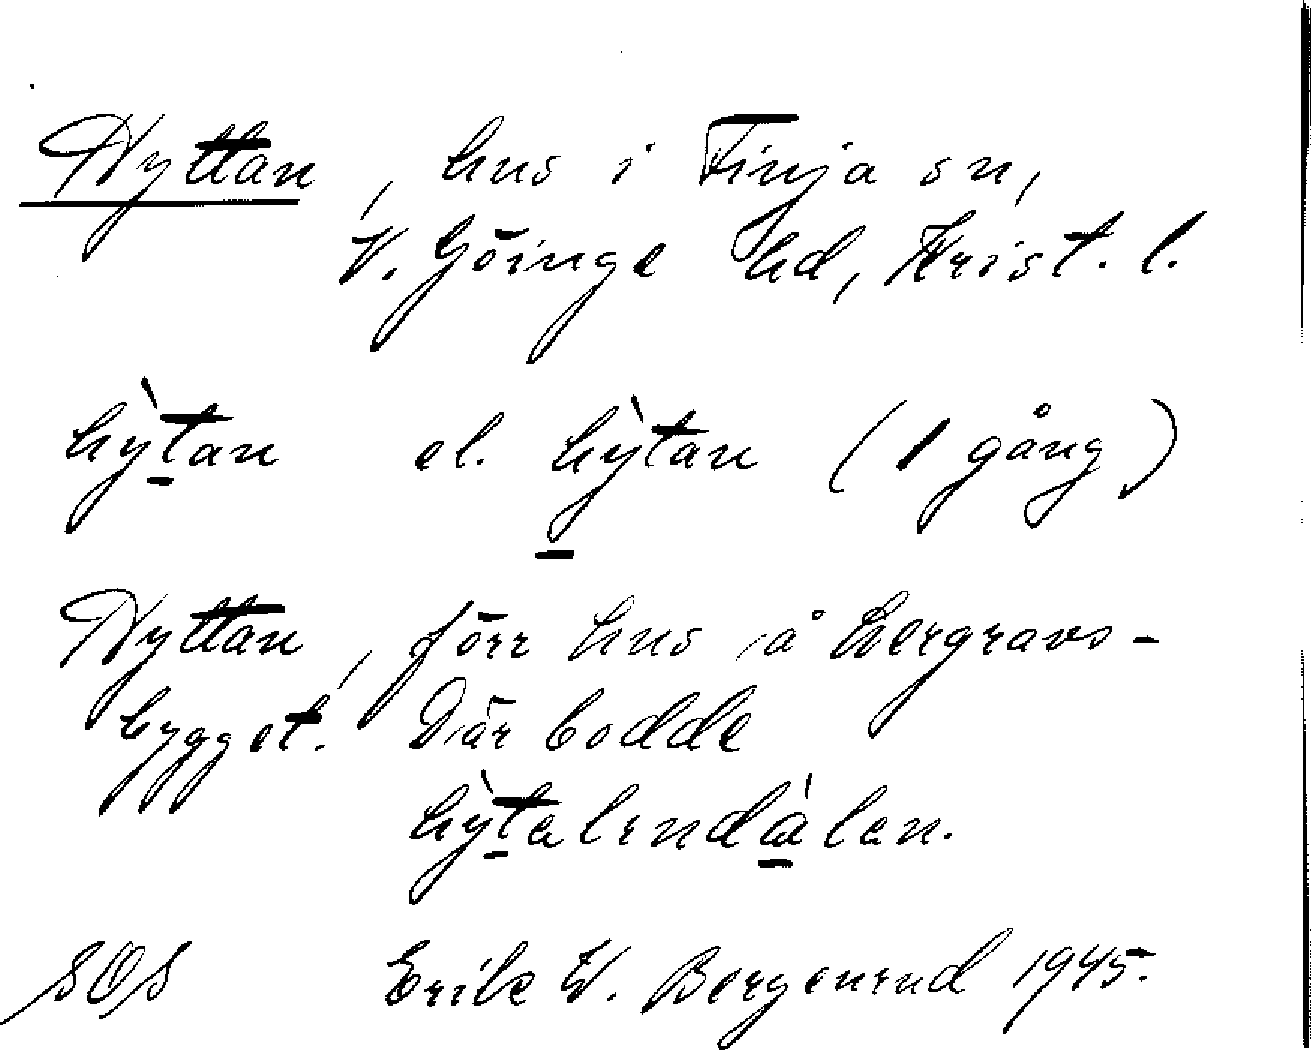 Hyttan, hus i Finja sn,
V. Göinge hd, Krist. l.
hỳ̠tan el. hỳ̠tan (1 gång)
Hyttan, förr hus å Hergravs-
bygget. Där bodde
hỳ̠talendá̠len.
SOS Erik W. Bergenrud 1945.